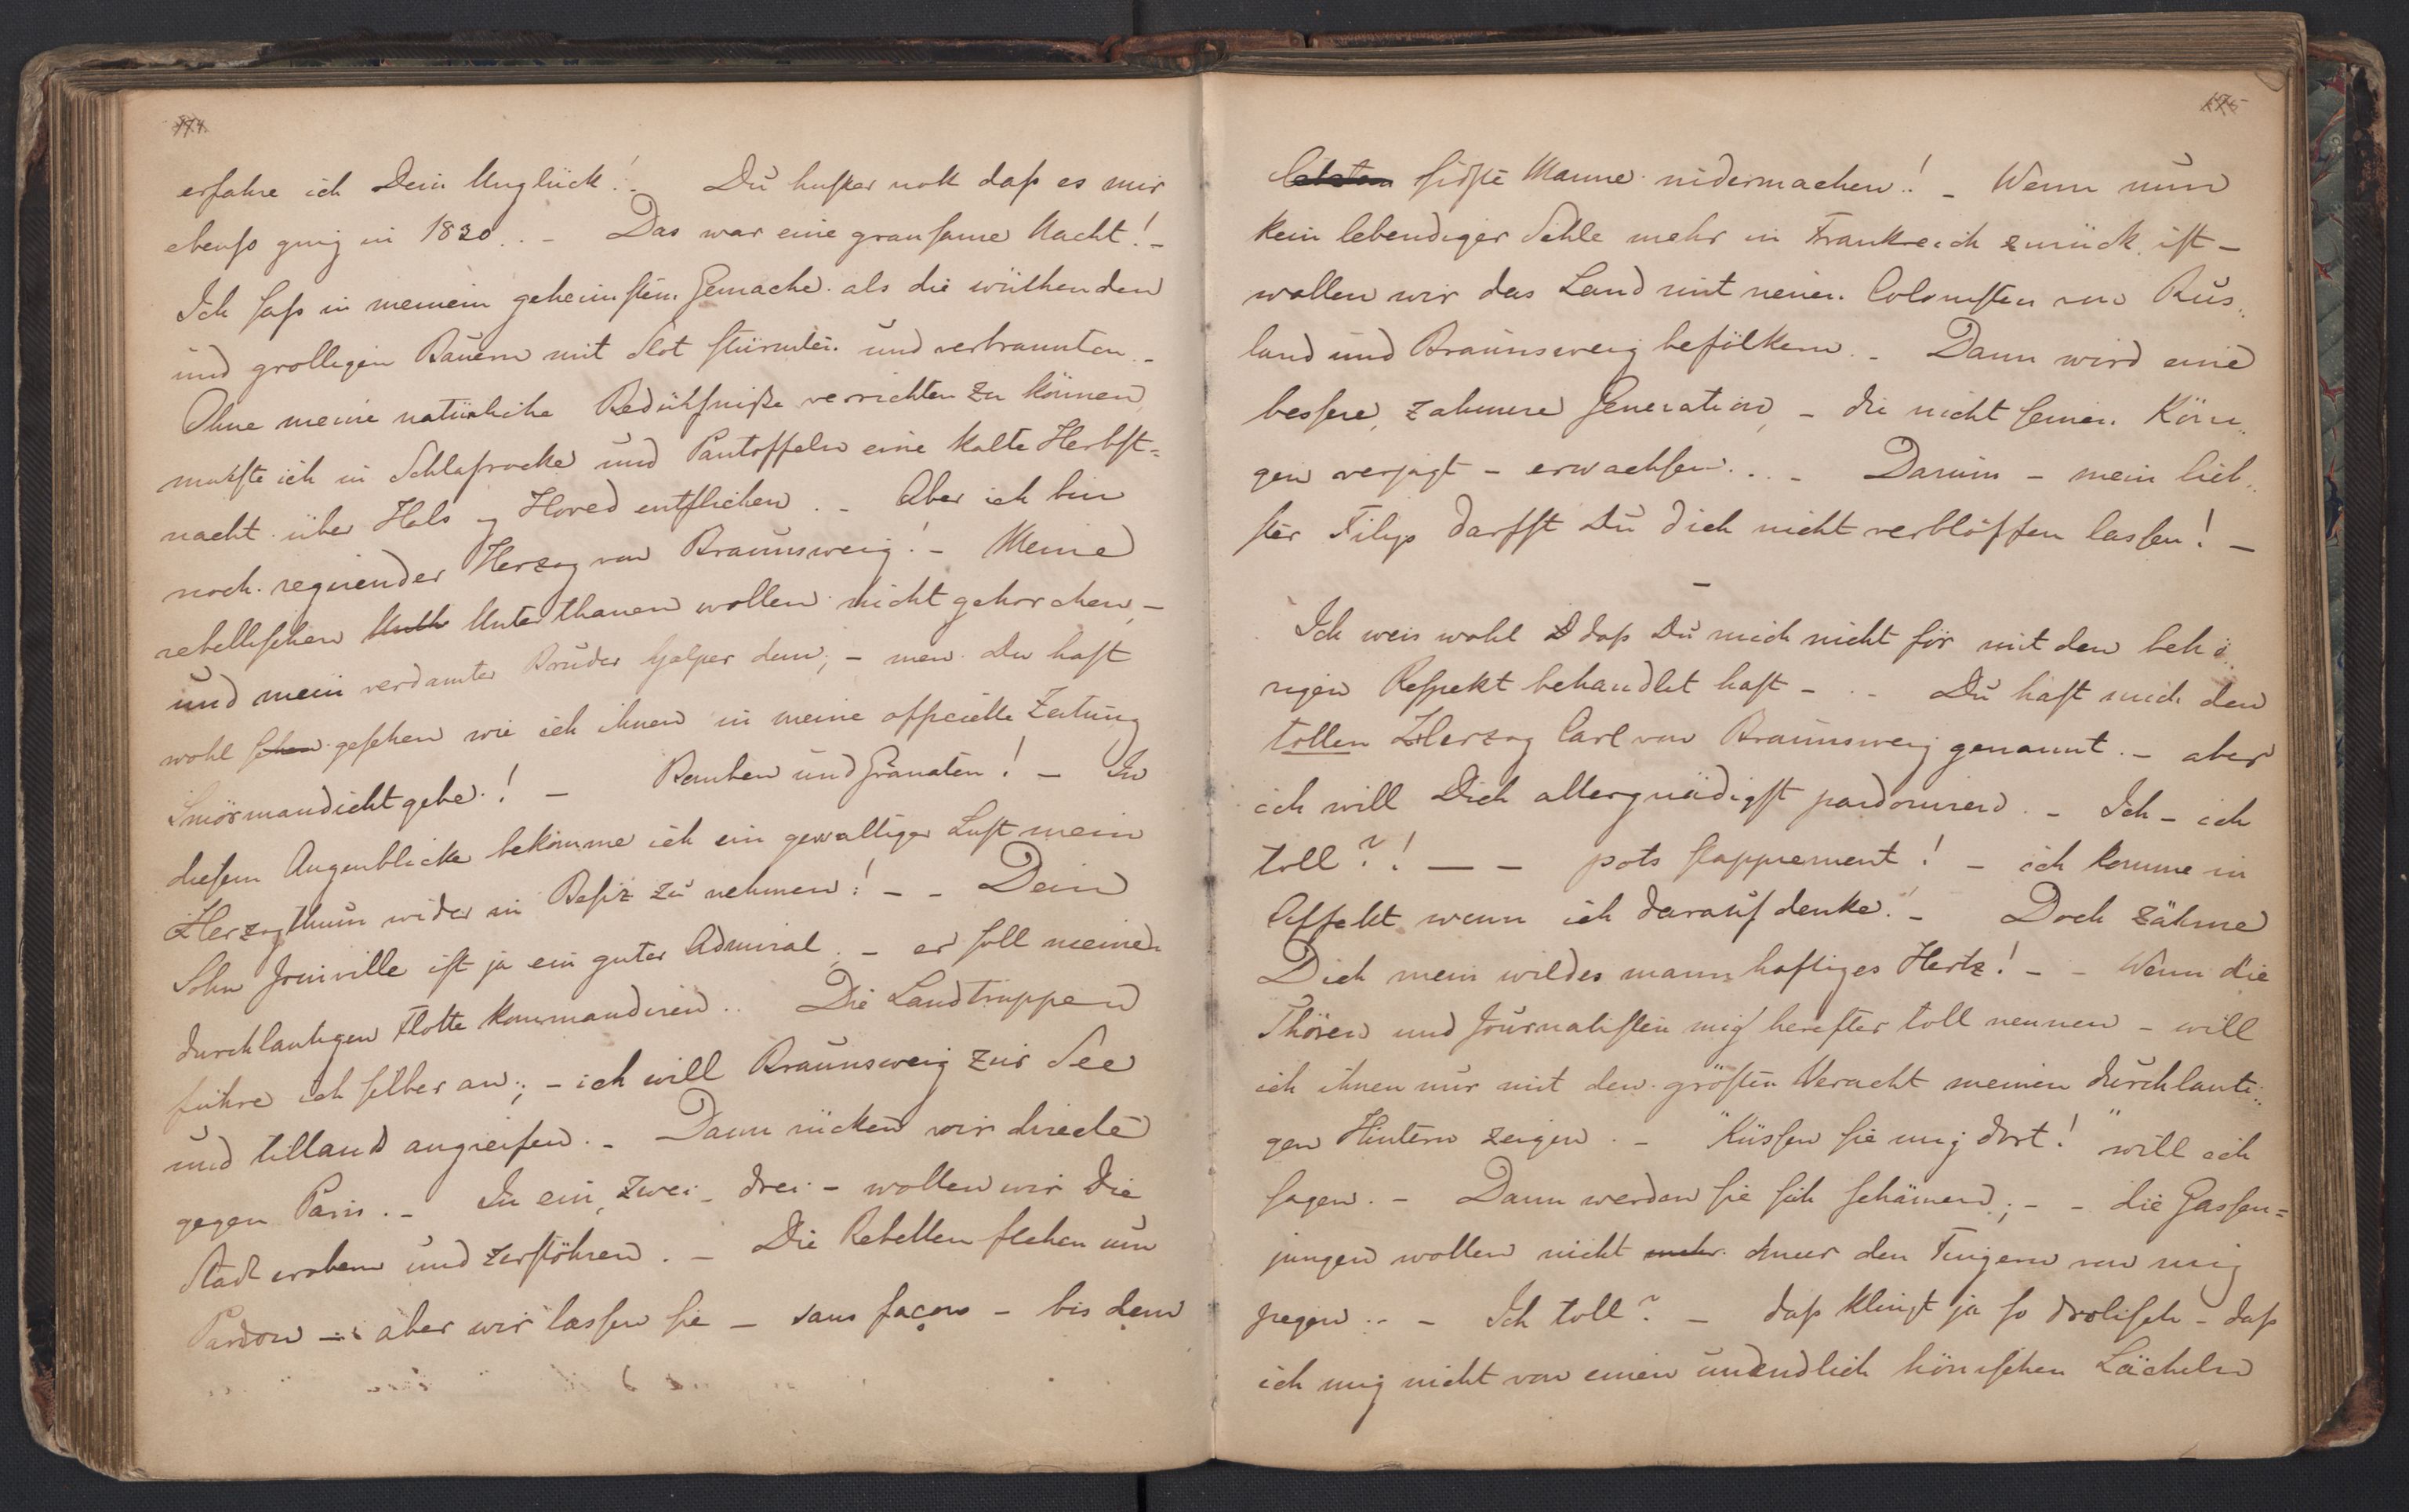 174.
erfahre ich Dein Unglück! Du husker nok daſs es mir
ebenſo ging in 1830.. – Das war eine grauſame Nacht! –
Ich ſaſs in meinem geheimſten Gemache als die wüthenden
und grolligen Bauern mit Slot ſtürmten und verbrannten. –
Ohne meine natürliche Bedühfniſse verrichten zu können,
muſste ich in Schlafrocke und Pantoffeln eine kalte Herbſt=
nacht über Hals og Hoved entfliehen. – Aber ich bin
noch regirender Herzog von Braunsweig! – Meine
rebelliſchen Unterthanen wollen nicht gehorchen, –
und mein verdamter Bruder hjælper dem; – men Du haſt
wohl geſehen wie ich ihnen in meine officielle Zeitung
Smörmandicht gebe! – Bomben und Granaten! – In
dieſem Augenblicke bekomme ich ein gewaltiger Luſt mein
Herzogthum wider in Beſiz zu nehmen! – – Dein
Sohn Joinville iſt ja ein guter Admiral. – er ſoll meine
durchlautigen Flotte kommandiren.. Die Landtruppen
führe ich ſelber an; – ich will Braunsweig zur See
und tillands angreifen. – Dann rücken wir directe
gegen Paris. – In ein, zwei – drei – wollen wir die
Stadt erobern und zerſtöhren. – Die Rebellen flehen um
Pardon – aber wir laſsen ſie – sans façon – bis dem
175
letsten ſidſte Manne nidermachen! – Wenn nun
kein lebendiger Sehle mehr in Frankreich zurück iſt –
wollen wir das Land mit neuen Coloniſten von Rus=
land und Braunsweig befölkern. – Dann wird eine
beſsere, zahmere Generation, – die nicht ſeinen Köni=
gen verjagt – erwachſen... – Darum – mein lieb=
ſter Filip darfſt Du dich nicht verblöffen laſsen! –
–
Ich weis wohl daſs Du mich nicht för mit den behö=
rigen Reſpekt behandlet haſt – .. Du haſt mich den
tollen Herzog Carl von Braunsweig genannt. – aber
ich will Dich allergnädigſt pardoniren. – Ich – ich
toll?! – – pots ſapprement! – ich komme in
Affekt wenn ich darauf denke. – Doch zähme
Dich mein wildes mannhaftiges Hertz! – – Wenn die
Thören und Journaliſten mig herefter toll nennen – will
ich ihnen nur mit den gröſten Veracht meinen durchlauti=
gen Hintern zeigen. – "Küsſen ſie mig dort!" will ich
ſagen. – Dann werden ſie ſich ſchämen; – – die Gaſsen=
jungen wollen nicht mehr den Fingern von mig
pegen.. – Ich toll? – daſs klingt ja ſo droliſch – daſs
ich mig nicht von einen unendlich höniſchen Lächeln